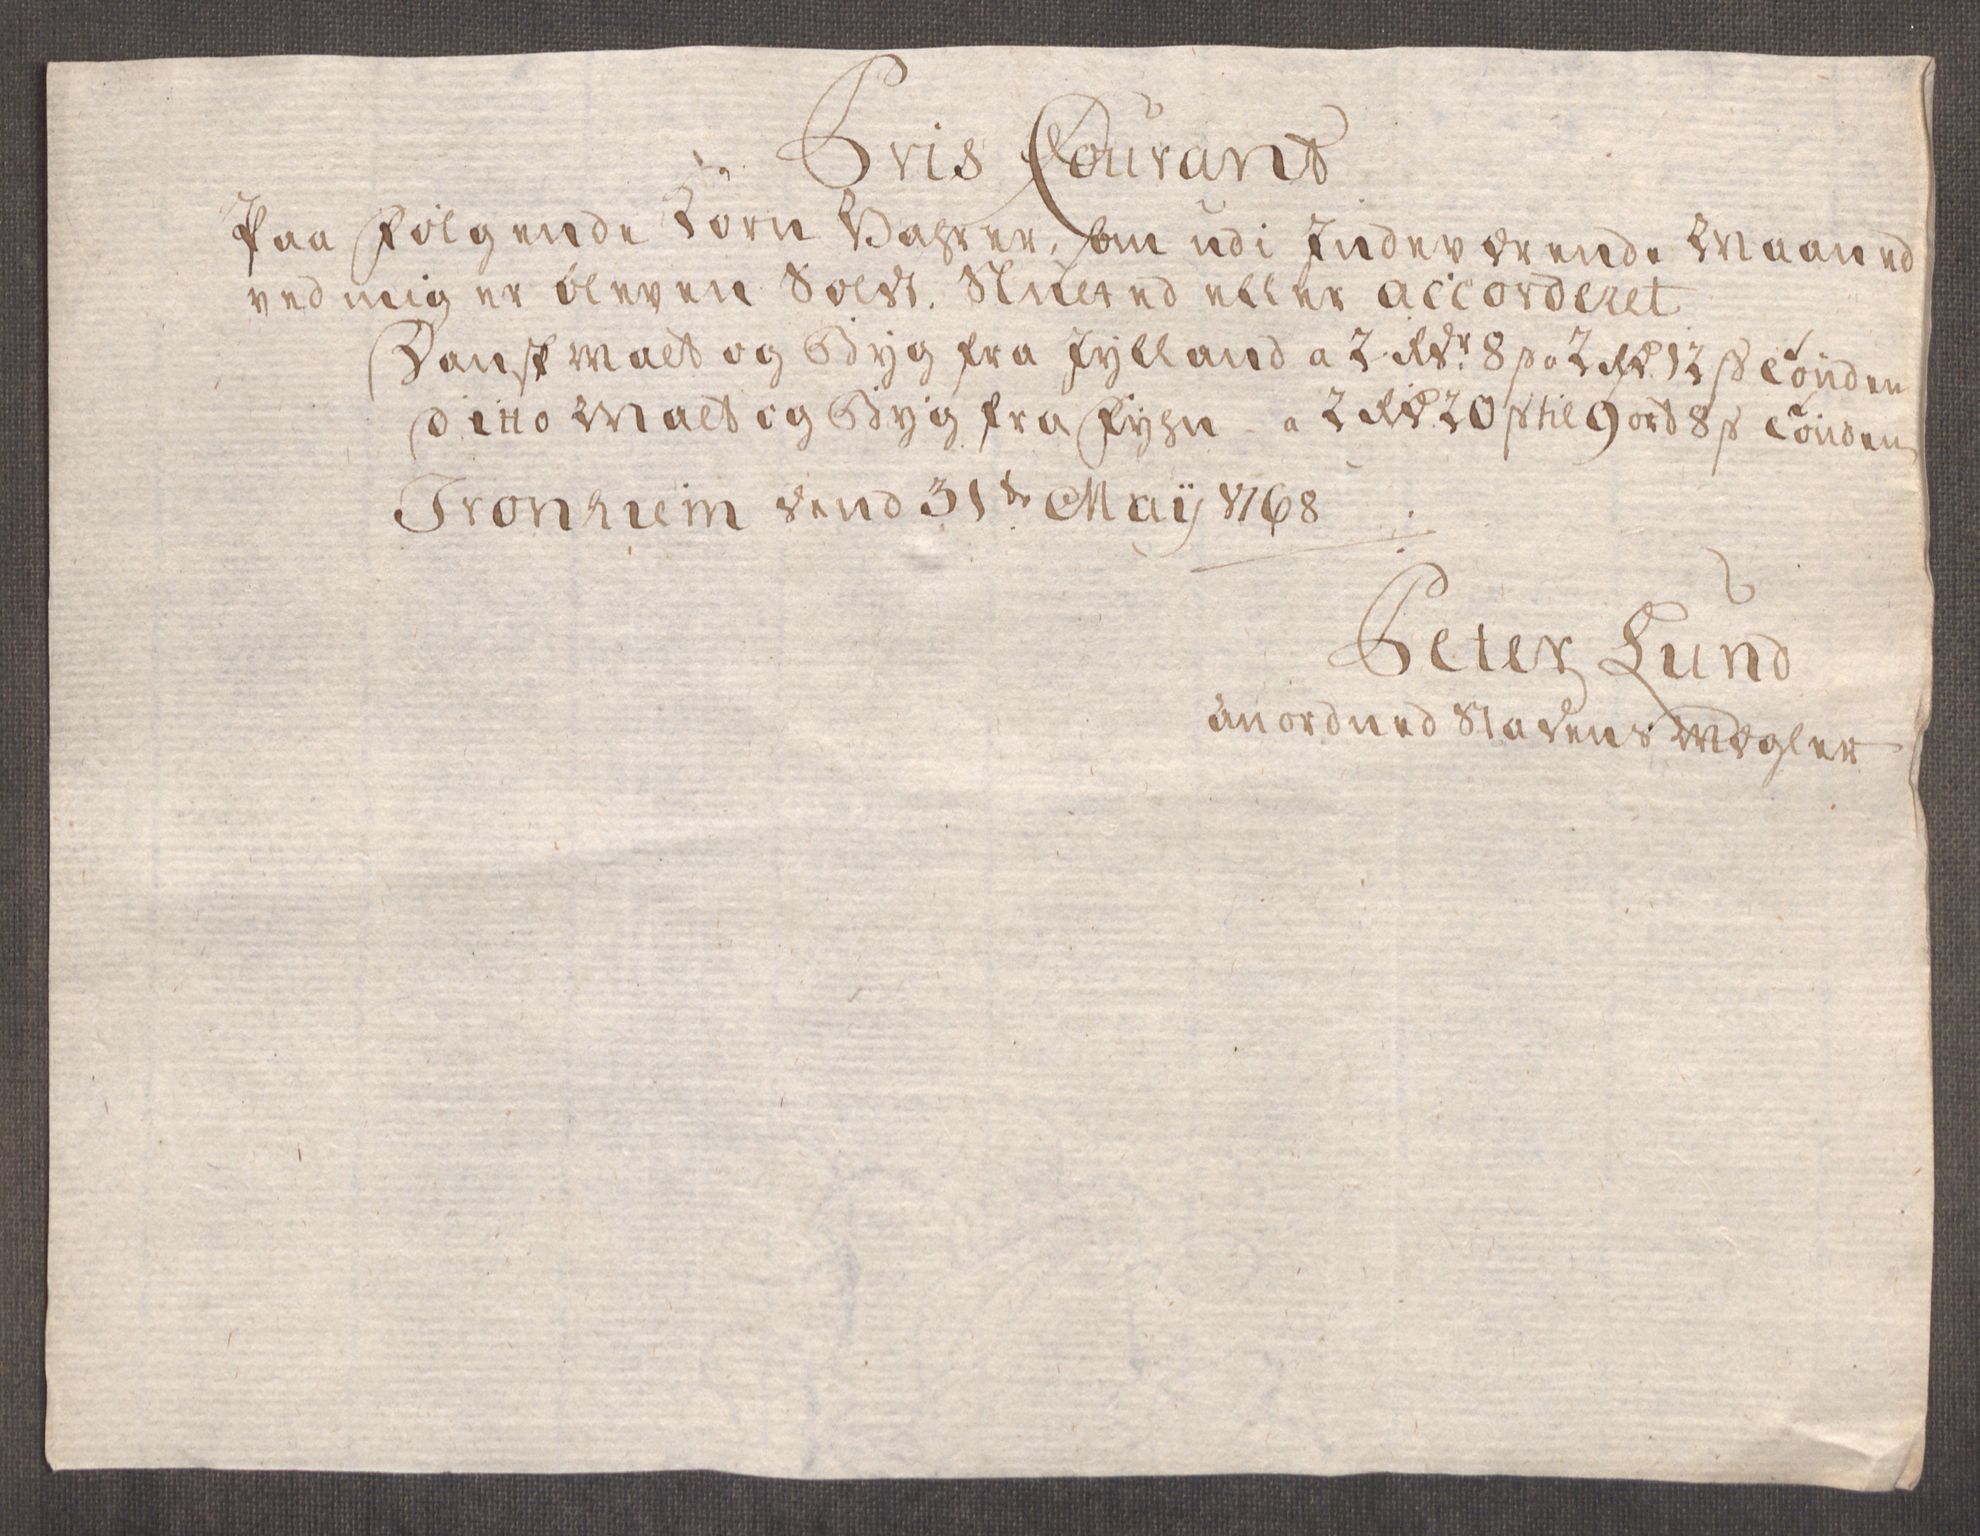 Pris Courant
Paa Følgende Korn Vahrer, som udi Indeværende Maaned
ved mig er bleven Soldt, Slutted eller accorderet
Dansk Malt og Byg fra Jylland a 2 Rdr. 8 s a 2 Rd. 12 s Tønden
ditto Malt og Byg fra Fyhn - a 2 Rd. 20 s til 9 ort 8 s Tønden
Tronhiem dend 31te Maÿ 1768
Peter Lund
anordned Stadens Mægler